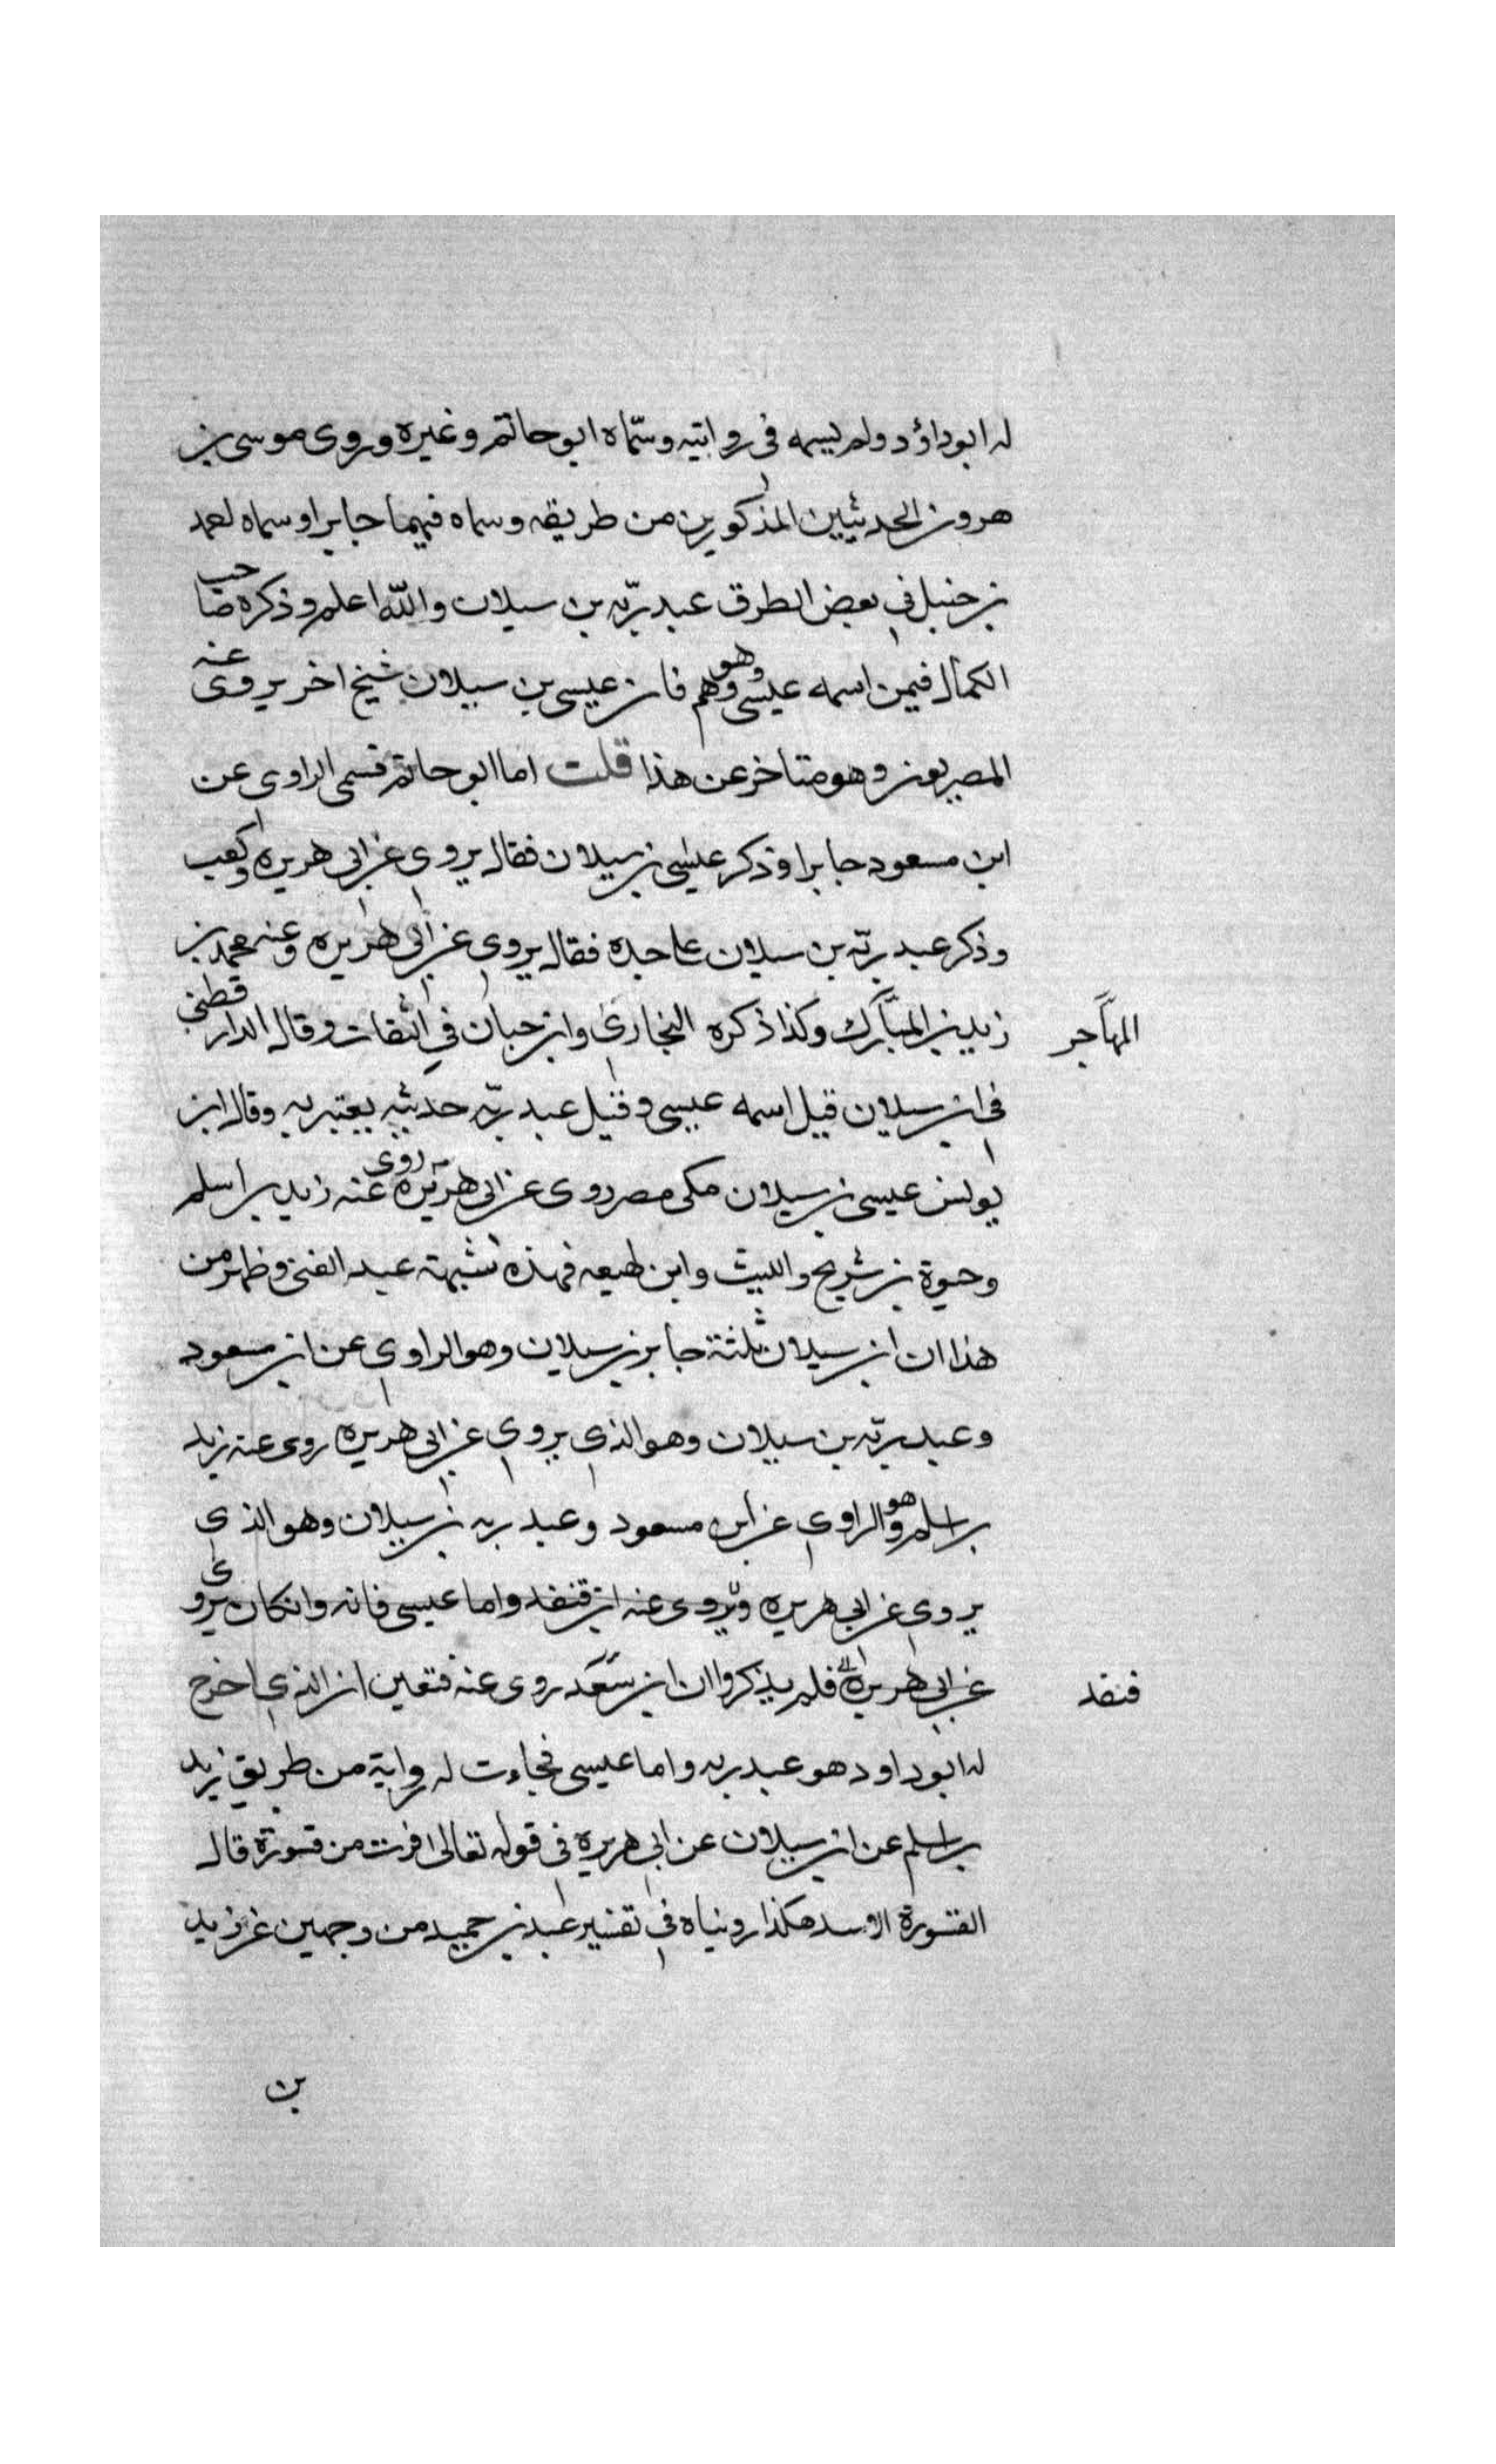 له ابوداؤد ولم يسمه فى روايته وسمّاه ابو حاتم وغيره وروى موسى بن
هرون الحديثين المذكورين من طريقه وسماه فيهما جابرا وسماه احمد
بن حنبل فى بعض الطرق عبد ربّه بن سيلان والله اعلم وذكره صاحب
الكمال فيمن اسمه عيسى وهو وهم فان عيسى بن سيلان شيخ اخر يروى عنه
المصريون وهو متاخر عن هذا قلت اما ابو حاتم فسمى الراوى عن
ابن مسعود جابرا وذكر عيسى بن سيلان فقال يروى عن ابى هريره وكعب
وذكر عبد ربّه بن سيلان على حده فقال يروى عن ابى هريره وعنه محمد بن
زيد بن المبارك وكذا ذكره البخارى وابن حبان فى الثقات وقال الدارقطنى
المهاجر
فى ابن سيلان قيل اسمه عيسى وقيل عبد ربّه حديثه يعتبر به وقال ابن
يونس عيسى بن سيلان مكى مصر روى عن ابى هريره روى عنه زيد بن اسلم
وحيوة بن شريح والليث وابن لهيعه فهذه شبهة عبد الغنى وظهر من
هذا ان ابن سيلان ثلثة جابر بن سيلان وهو الراوى عن ابن مسعود
وعبد ربّه بن سيلان وهو الذى يروى عن ابى هريره روى عنه زيد
بن اسلم وهو الراوى عن ابن مسعود وعبد ربه بن سيلان وهو الذى
يروى عن ابى هريره ويروى عنه ابن قنفد واما عيسى فانه وانكان يروى
عن ابى هريرة فلم يذكروا ان ابن سعد روى عنه فتعين ان الذى اخرج
قنفد
له ابو داود هو عبد ربه واما عيسى فجاءت له رواية من طريق زيد
بن اسلم عن ابن سيلان عن ابى هريره فى قوله تعالى فرت من قسورة قال
القسورة الاسد هكذا رويناه فى تفسير عبد بن حميد من وجهين عن زيد
بن